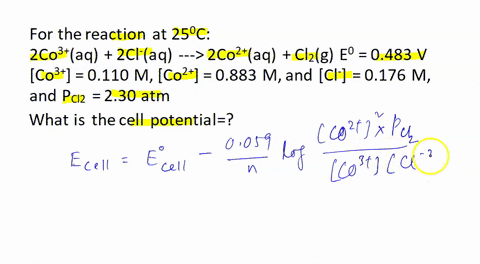 For the reaction at 25⁰C:
2Co³⁺(aq) + 2Cl⁻(aq) ---> 2Co²⁺(aq) + Cl₂(g) E⁰ = 0.483 V
[Co³⁺] = 0.110 M, [Co²⁺] = 0.883 M, and [Cl⁻] = 0.176 M,
and P_Cl2 = 2.30 atm
What is the cell potential=?
E cell = E° cell − 0.059/n log [Co²⁺]² × P_Cl₂ / [Co³⁺] [Cl